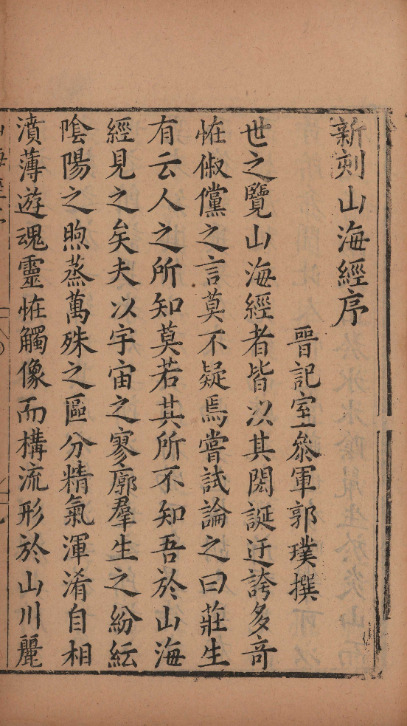 新刻山海經序
晉記室叅軍郭璞撰
世之覽山海經者皆以其閎誕迂誇多奇
恠俶儻之言莫不疑焉嘗試論之曰莊生
有云人之所知莫若其所不知吾於山海
經見之矣夫以宇宙之寥廓羣生之紛紜
陰陽之煦蒸萬殊之區分精氣渾淆自相
濆薄遊魂靈恠觸像而構流形於山川麗